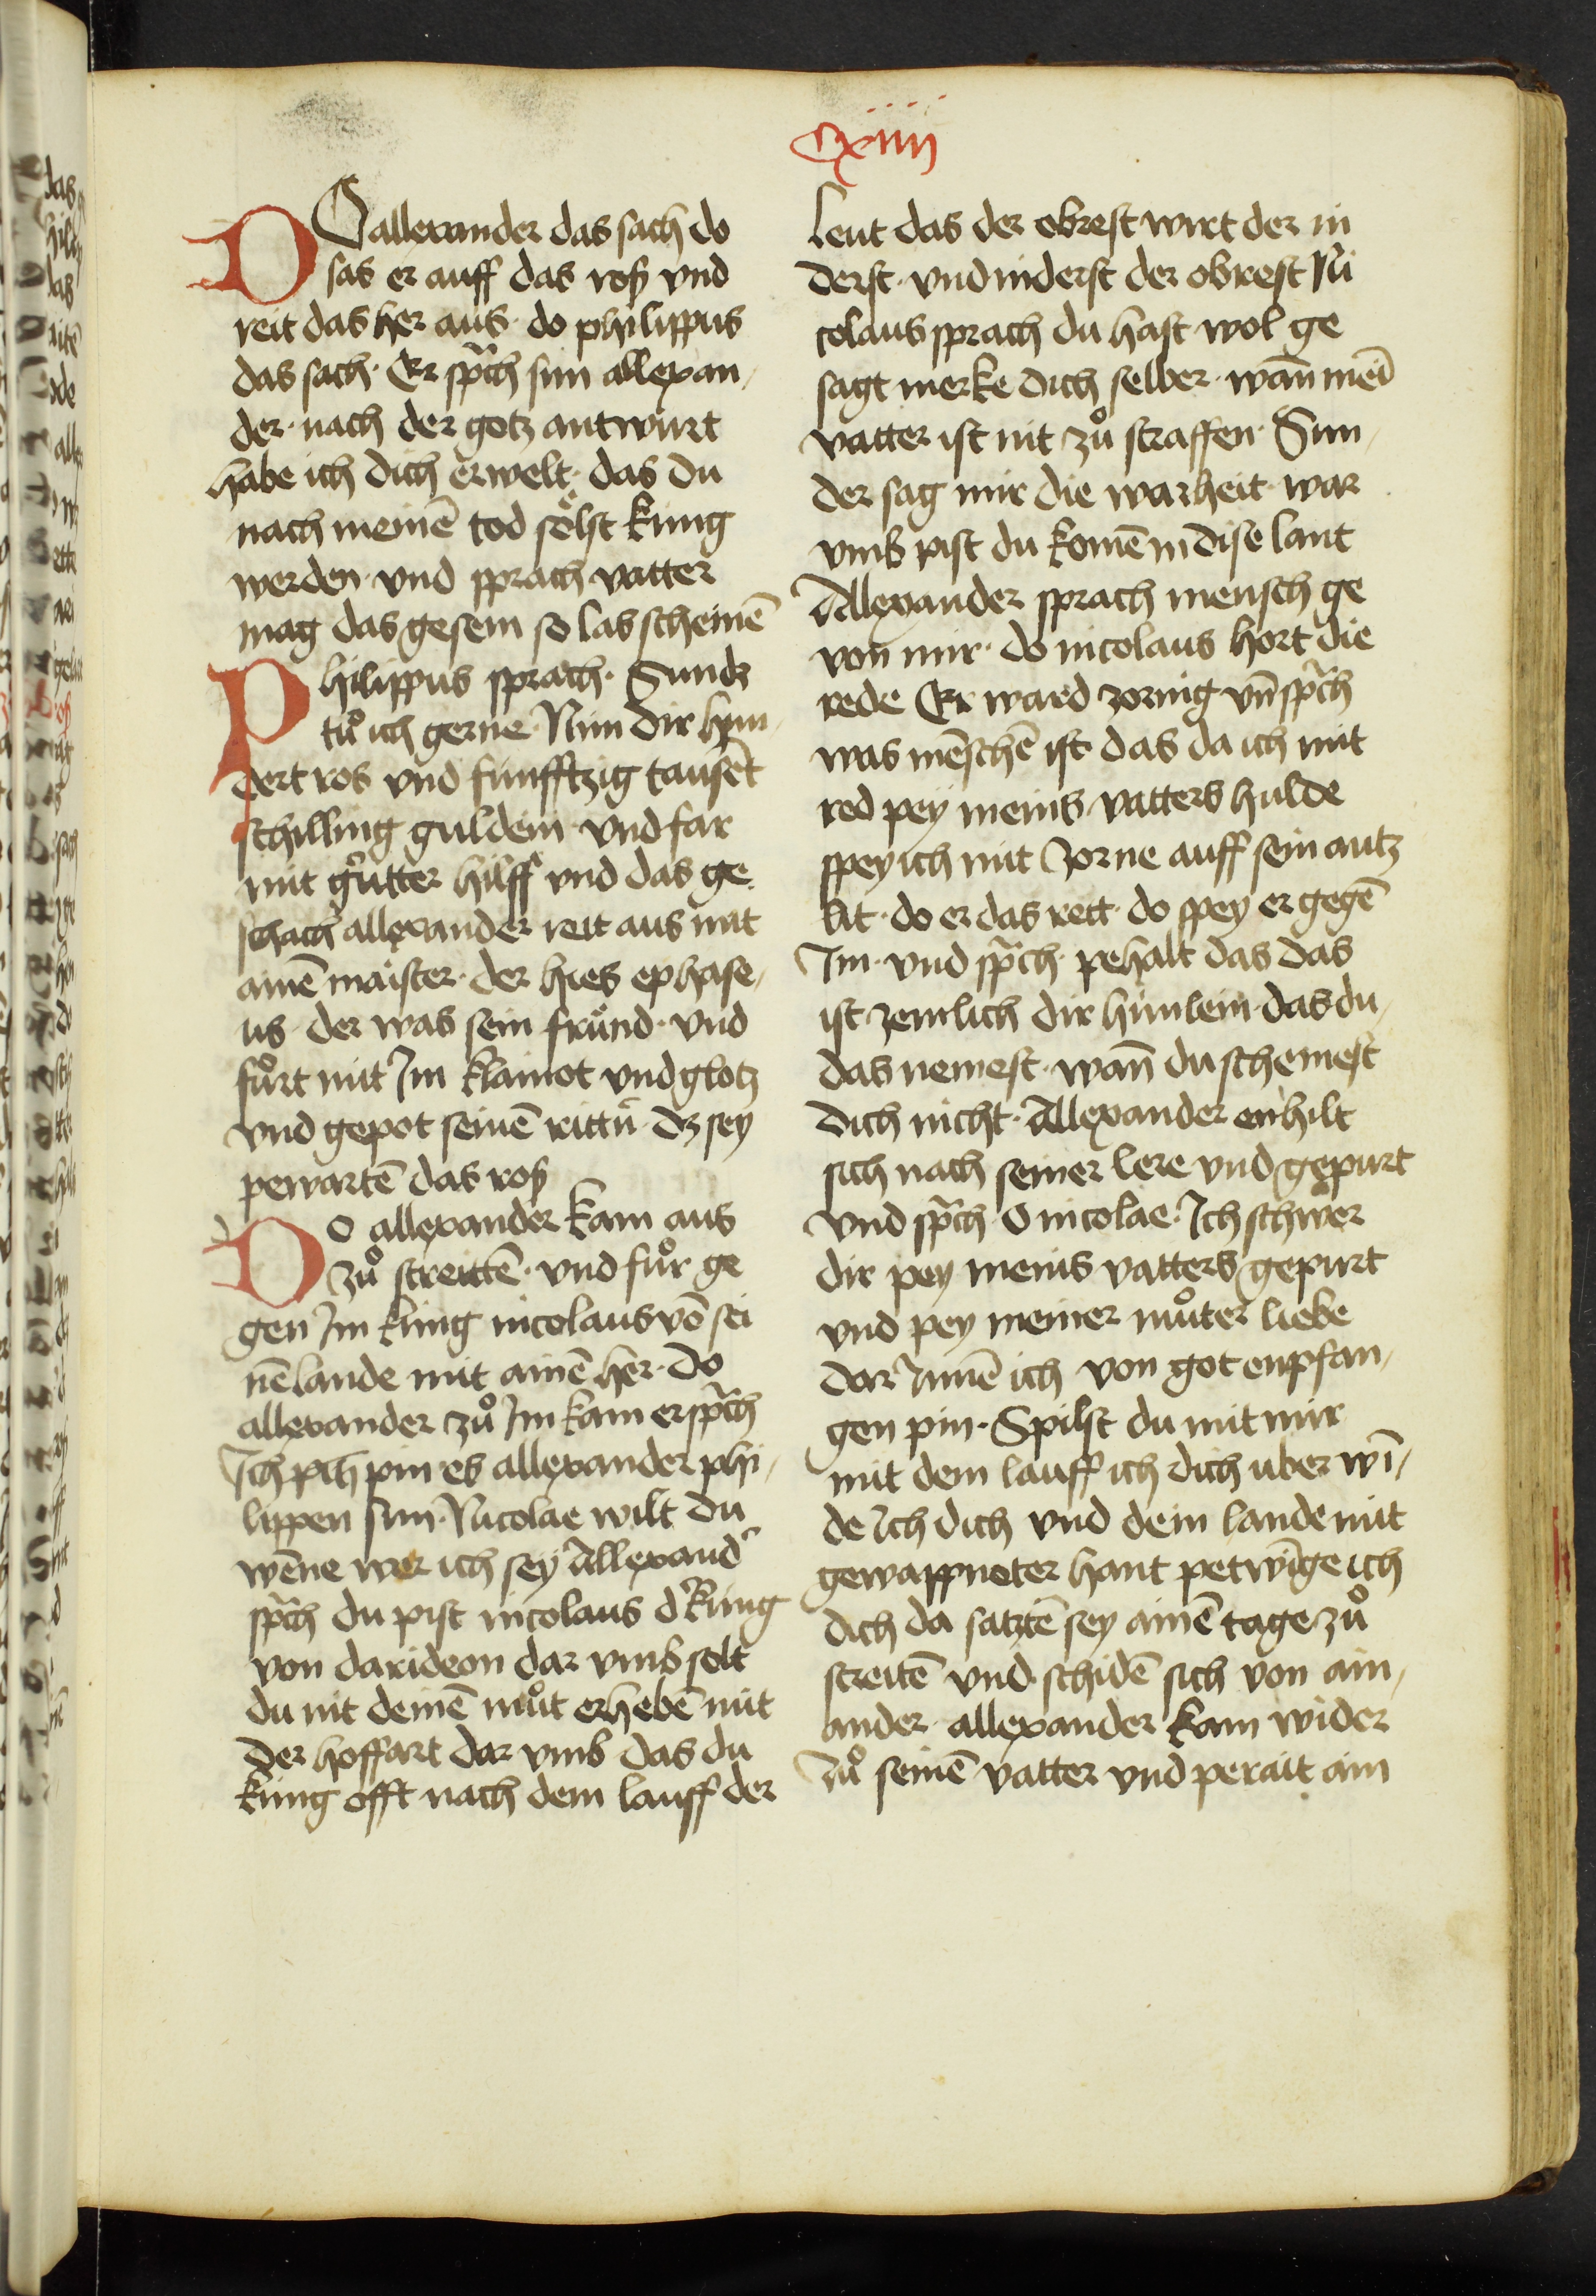 Cxiiij
DO allexander das sach do
sas er auff das roß vnd
reit das her aus · do philippus
das sach · Er sp̃ch sun allexan¬
der · nach der gotz antwurt
habe ich dich erwelt · das du
nach meinē tod sölst kung
werden · vnd sprach vatter
mag das gesein so las scheinē
Philippus sprach · Sundz
tuͦ ich gerne · Nim dir hun¬
dert ros vnd funfftzig tausēt
schilling guldein · vnd far
mit guͦtter hilff vnd das ge
schach allexander reit aus mit
ainē maister · der hies ephase¬
us · der was sein fründ · vnd
fuͦrt mit Im klainot vnd glotz
vnd gepot seinē rittn̄ · dz sey
pewartē das roß
DO allexander kam aus
zuͦ streittē · vnd fuͦr ge
gen Im kung nicolaus vō sei
nē lande mit ainē her · do
allexander zuͦ Im kam er sp̃ch
Ich pin es allexander phi¬
lippen sun · Nicolae wilt du
wēne wer ich sey Allexand̾
sp̃ch du pist nicolaus d̾ kung
von darideon dar vmb solt
du nit deinē muͦt erhebē mit
der hoffart dar vmb das du
kung offt nach dem lauff der
leut das der obrest wirt der in
derst · vnd inderst der obrest Ni
colaus sprach du hast wol ge
sagt merke dich selber · wañ meī
vatter ist nit zuͦ straffen · Sun¬
der sag mir die warheit · war
vmb pist du komē in dise lant
Allexander sprach mensch ge
von mir · do nicolaus hort die
rede Er ward zornig vñ sp̃ch
was mēschē ist das da ich mit
red pey meins vatters hulde
spey ich mit Zorne auff sein antz
lit · do er das rett · do spey er gegē
Im · vnd sp̃ch · pehalt das das
ist zemlich dir hünlein · das du¬
das nemest · wañ du schemest
dich nicht · Allexander enhilt
sich nach seiner lere vnd gepurt
vnd sp̃ch · O nicolae · Ich schwer
dir pey meins vatters gepurt
vnd pey meiner muͦter liebe
dar Innē ich von got enpfan¬
gen pin · Spilst du mit mir
mit dem lauff ich dich uber wī¬
de Ich dich vnd dein lande mit
gewappneter hant petwīge ich
dich da satztē sey ainē tage zuͦ
streitē vnd schidē sich von ain¬
ander · allexander kam wider
zuͦ seinē vatter vnd perait ain